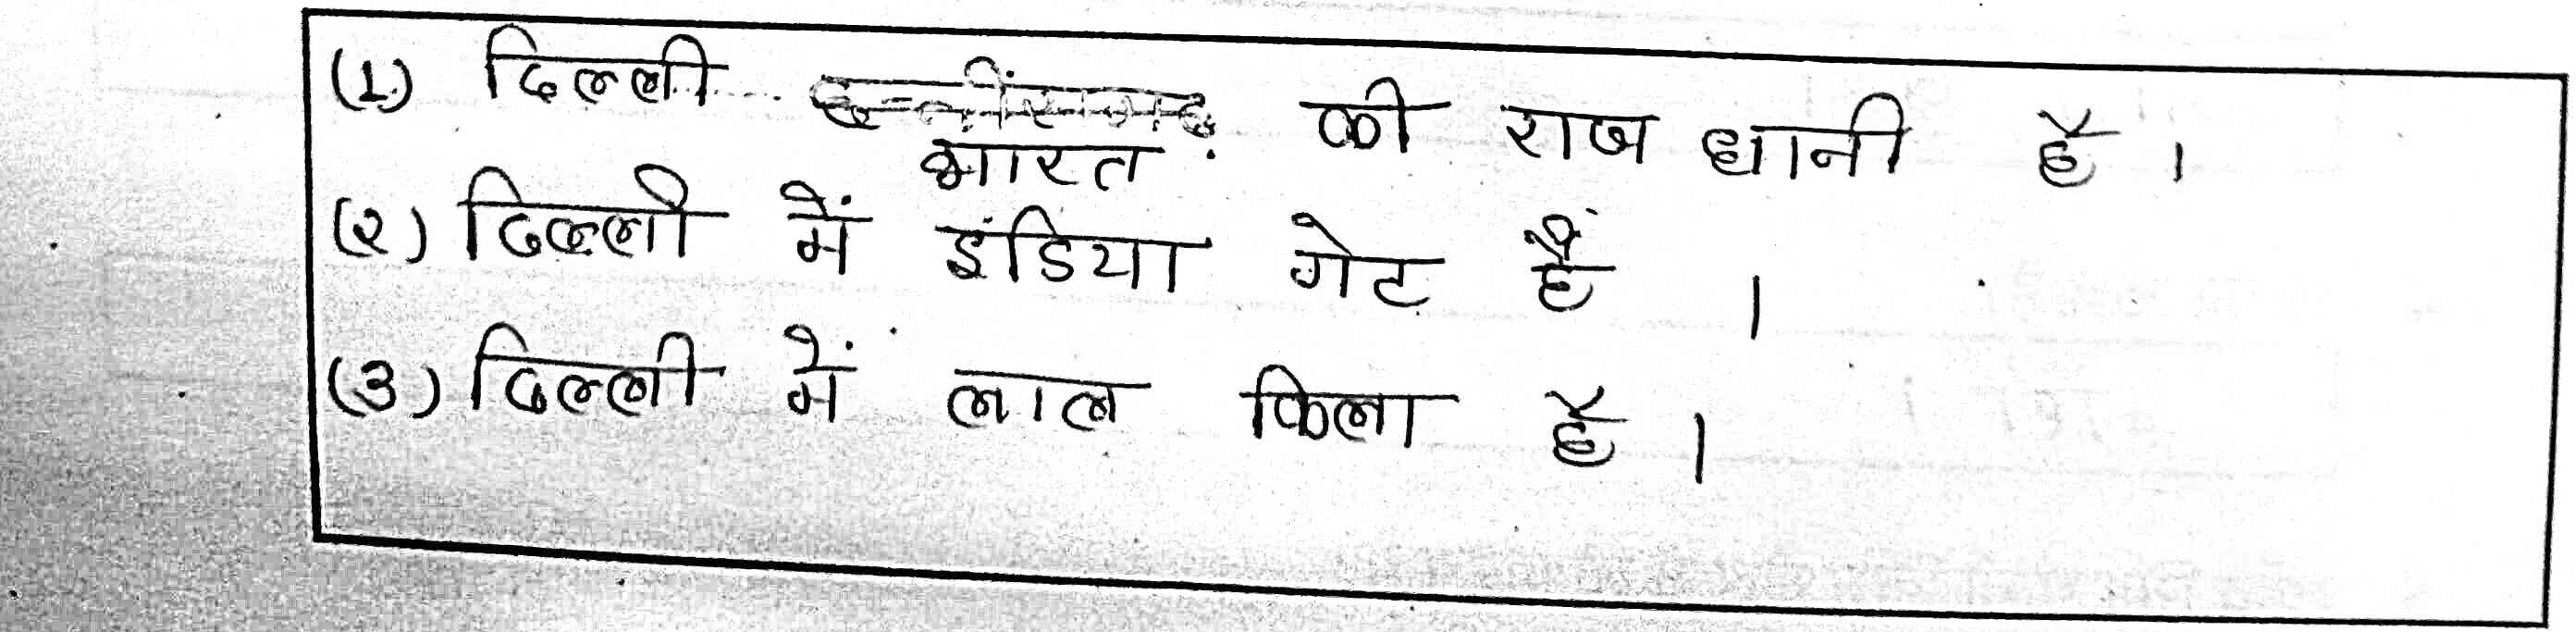 (1) दिल्ली भारत की राज धानी है ।
(२) दिल्ली में इंडिया गेट हैं ।
(3) दिल्ली में लाल किला है ।